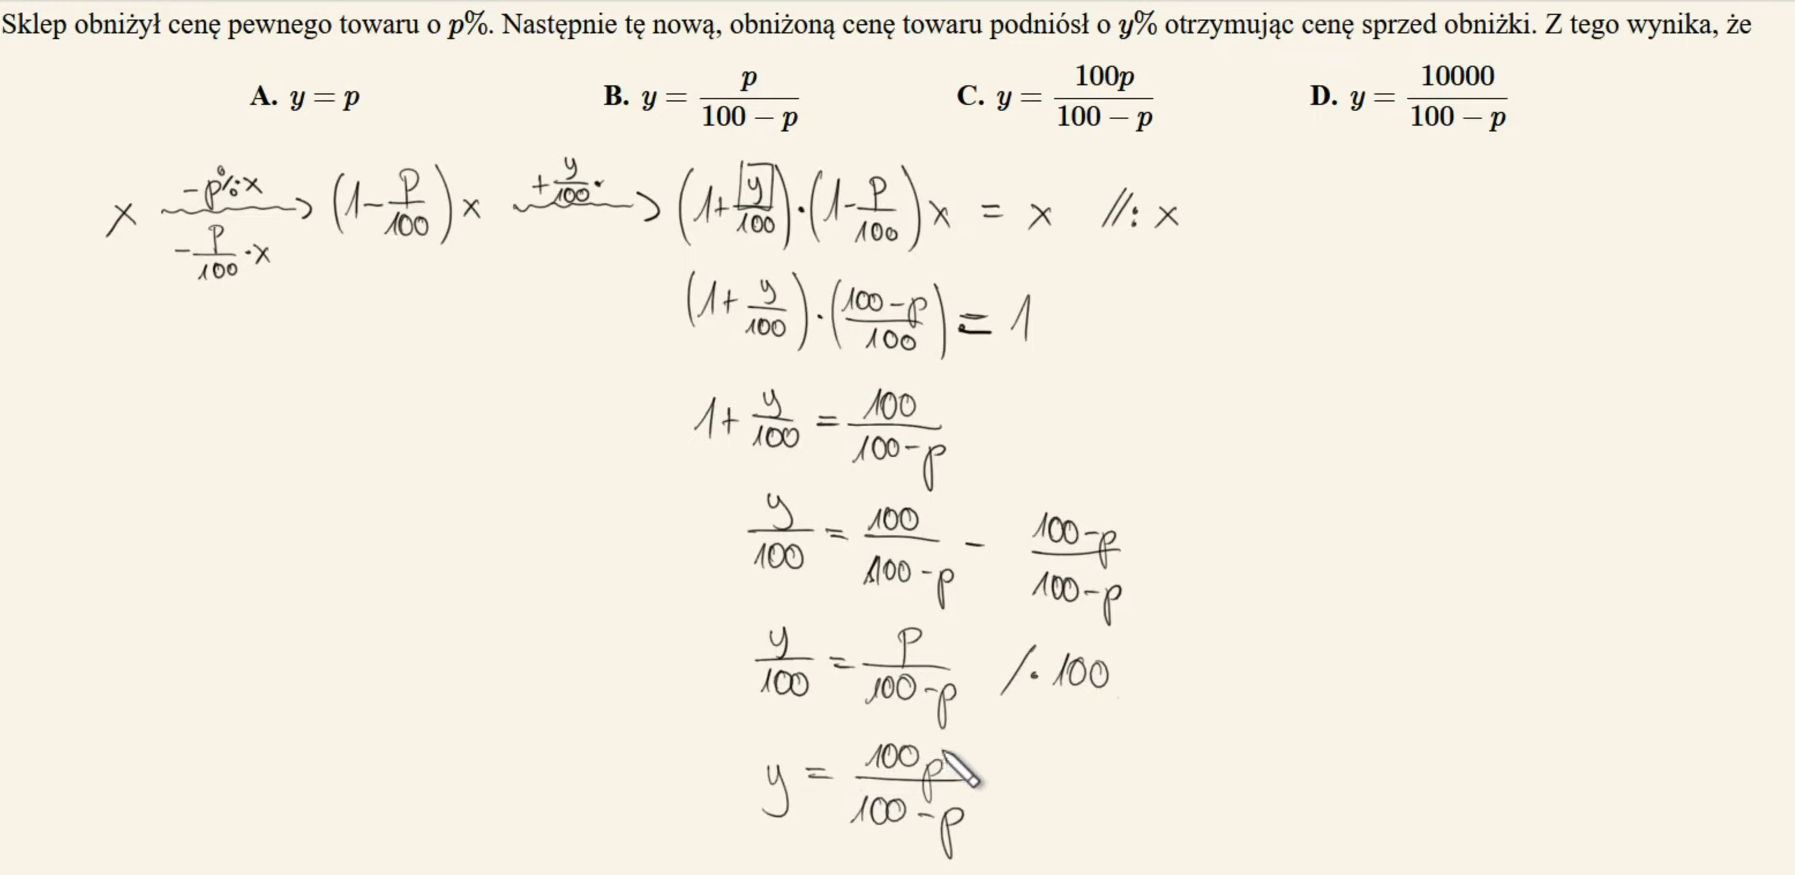 Sklep obniżył cenę pewnego towaru o p%. Następnie tę nową, obniżoną cenę towaru podniósł o y% otrzymując cenę sprzed obniżki. Z tego wynika, że
A. y = p B. y = p/(100 − p) C. y = 100p/(100 − p) D. y = 10000/(100 − p)
x −p%·x −p/100 ·x → (1 − p/100) x +y/100 · → (1 + y/100) · (1 − p/100) x = x //: x
(1 + y/100) · ((100 − p)/100) = 1
1 + y/100 = 100/(100 − p)
y/100 = 100/(100 − p) − (100 − p)/(100 − p)
y/100 = p/(100 − p) /· 100
y = 100p/(100 − p)